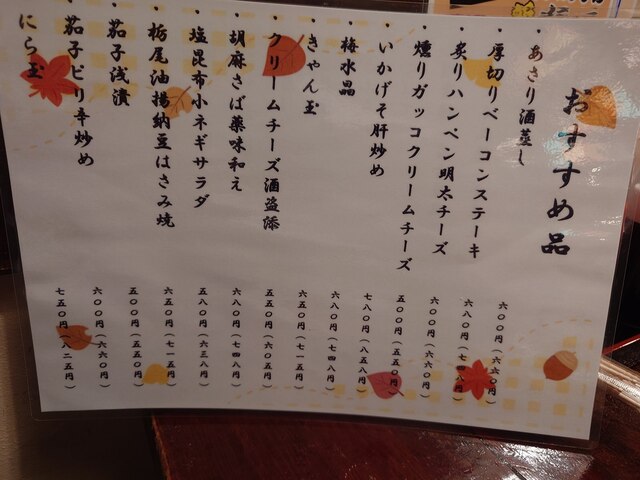 おすすめ品
・あさり酒蒸し 六〇〇円(六六〇円)
・厚切りベーコンステーキ 六八〇円(七四八円)
・炙りハンペン明太チーズ 六〇〇円(六六〇円)
・燻りガッコクリームチーズ 五〇〇円(五五〇円)
・いかげそ肝炒め 七八〇円(八五八円)
・梅水晶 六八〇円(七四八円)
・きゃん玉 六五〇円(七一五円)
・クリームチーズ酒盗添 五五〇円(六〇五円)
・胡麻さば薬味和え 六八〇円(七四八円)
・塩昆布小ネギサラダ 五八〇円(六三八円)
・栃尾油揚納豆はさみ焼 六五〇円(七一五円)
・茄子浅漬 五〇〇円(五五〇円)
・茄子ピリ辛炒め 六〇〇円(六六〇円)
にら玉 七五〇円(八二五円)